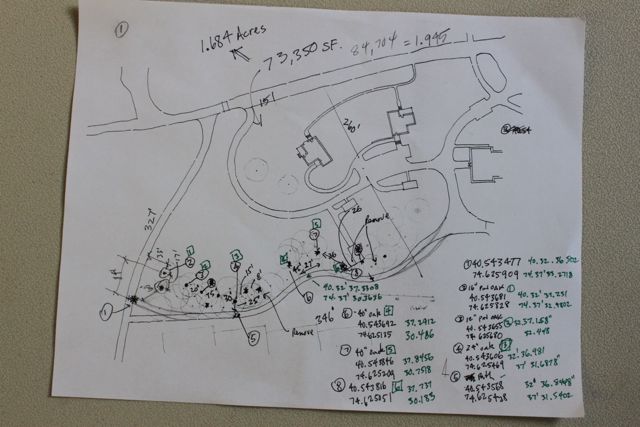 1
1.684 Acres
73,350 SF. 84,704 = 1.945
151
260'
327
26
Remove
Remove
346'
40.32' 37.3308
74.37' 30.3636
1 40.543477 40.32.36.502
74.625909 74.37'33.2718
2 16" red oak 1
40.543681 40.32' 37.251
74.625828 74.37' 32.9802
3 12" red oak 2
40.543655 32,37.158"
74.625680 32.448
4 24" oak 3
40.543606 32' 36.981
74.625469 37' 31.6878"
5 Path
40.543568 32" 36.8448"
74.625428 37' 31.5402
6 - 40" oak 4
40.543692 37.2912
74.625135 30.486
7 40" oak 5
40.543846 37.8456
74.625209 30.7518
8 40.543816 6 37.737
74.625051 30.183